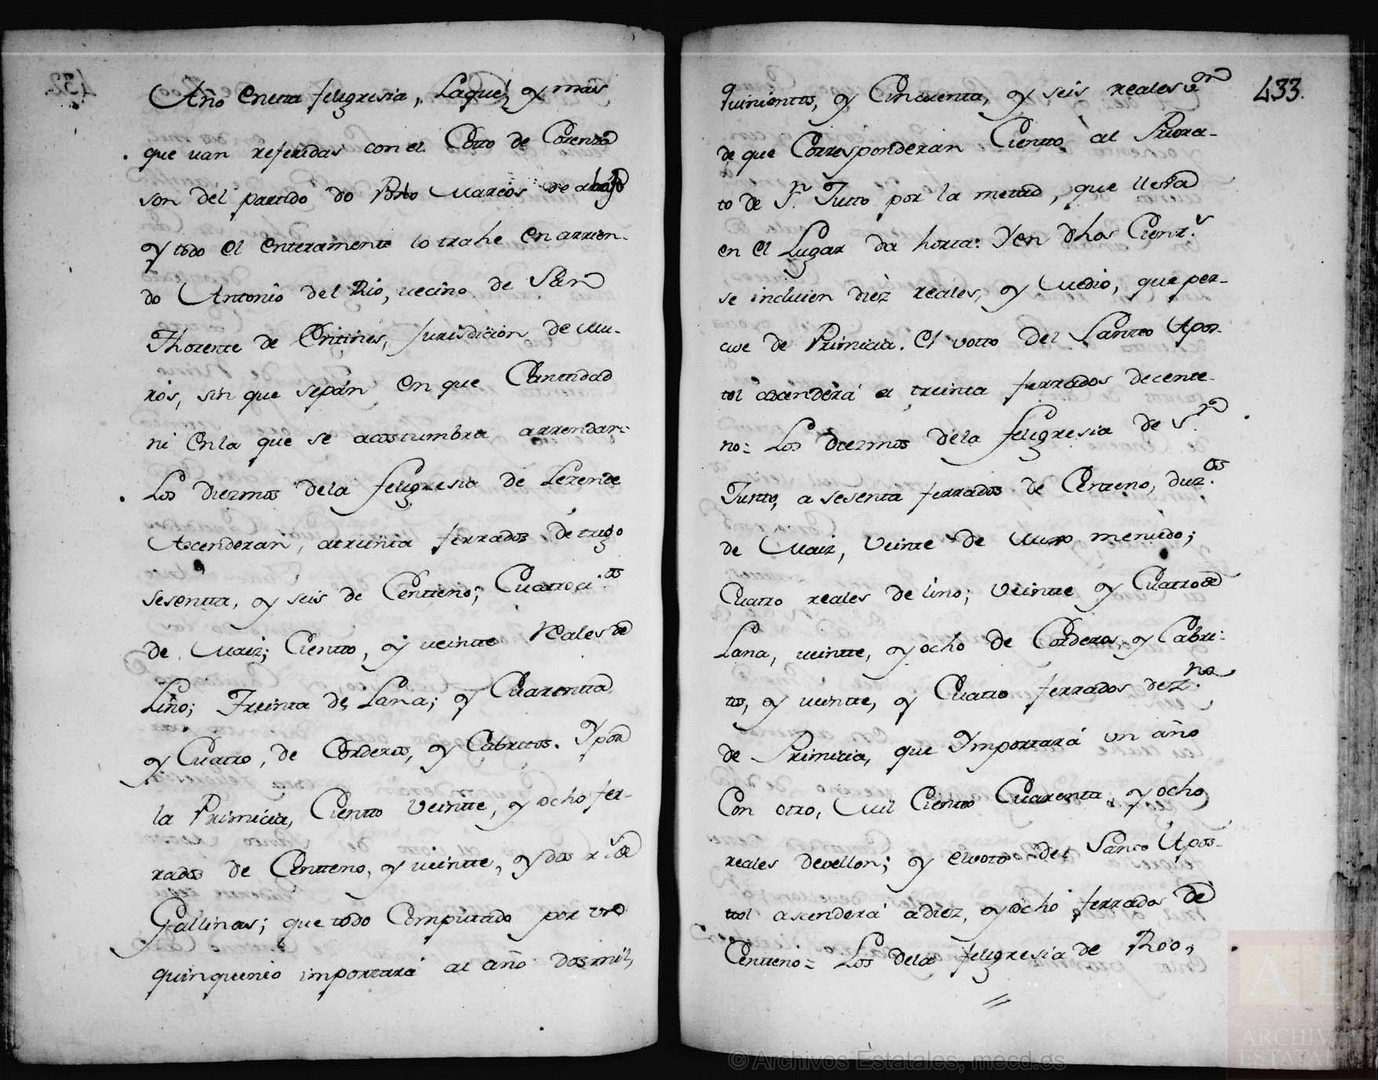 Año enesta feligresia, Laque, y mas
que van referidas con el Coto de
son del partido do Porto Marcos de abajo
y todo el enteramente lo trahe en arrien-
do Antonio del Rio, vecino de San
Thorente de Entines, Jurisdicion de Mu-
ros, sin que sepan en que Cantidad
ni enla que se acostumbra arrendar=
Los diezmos dela feligresia de
Ascenderan, atreinta ferrados de trigo
sesentta, y seis de Centteno; Cuatroci.os
de Maiz; Cientto, y veintte reales de
Lino; Treinta de Lana; y Cuarentta
y Cuatro, de Corderos, y Cabritos. Ypor
la Primicia, Cientto veintte, y ocho fer-
rados de Centteno, y veintte, y dos r.s de
Gallinas; que todo Computado por un
quinquenio importará al año dosmil,
433.
quinientos, y Cincuenta, y seis reales v.on
de que Corresponderan Ciento al Priora-
to de S.n Justto por la metad, que lleva
en el Lugar da horta: Yen dhos
se incluien diez reales, y Medio, que per-
cive de Primicia. El votto del Santto Apos-
tol ascenderá a treinta ferrados decente-
no= Los diezmos dela feligresia de S.n
Justto, a sesenta ferrados de Centeno, duz.os
de Maiz, Veinte de Millo menudo;
Cuatro reales de lino; veintte y Cuatro de
Lana, veintte, y ocho de Corderos, y Cabri-
tos, y veintte, y Cuatro ferrados dez.no
de Primicia, que Ymportará un año
Con otro, Mil Ciento Cuarenta, y ocho
reales devellon; y elvoto del Santo Apos-
tol ascenderá adiez, y ocho ferrados de
Centteno= Los dela feligresia de Roo,
© Archivos Estatales, mecd.es
AE
ARCHIVOS
ESTATALES